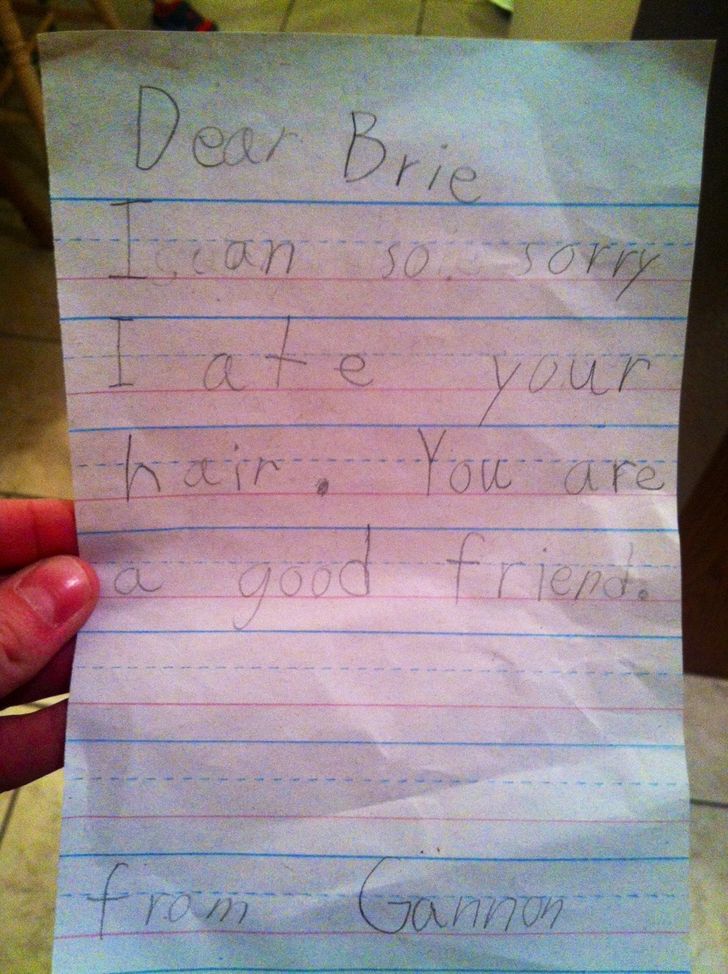 Dear Brie
I an so sorry
I ate your
hair. You are
a good friend.
from Gannon